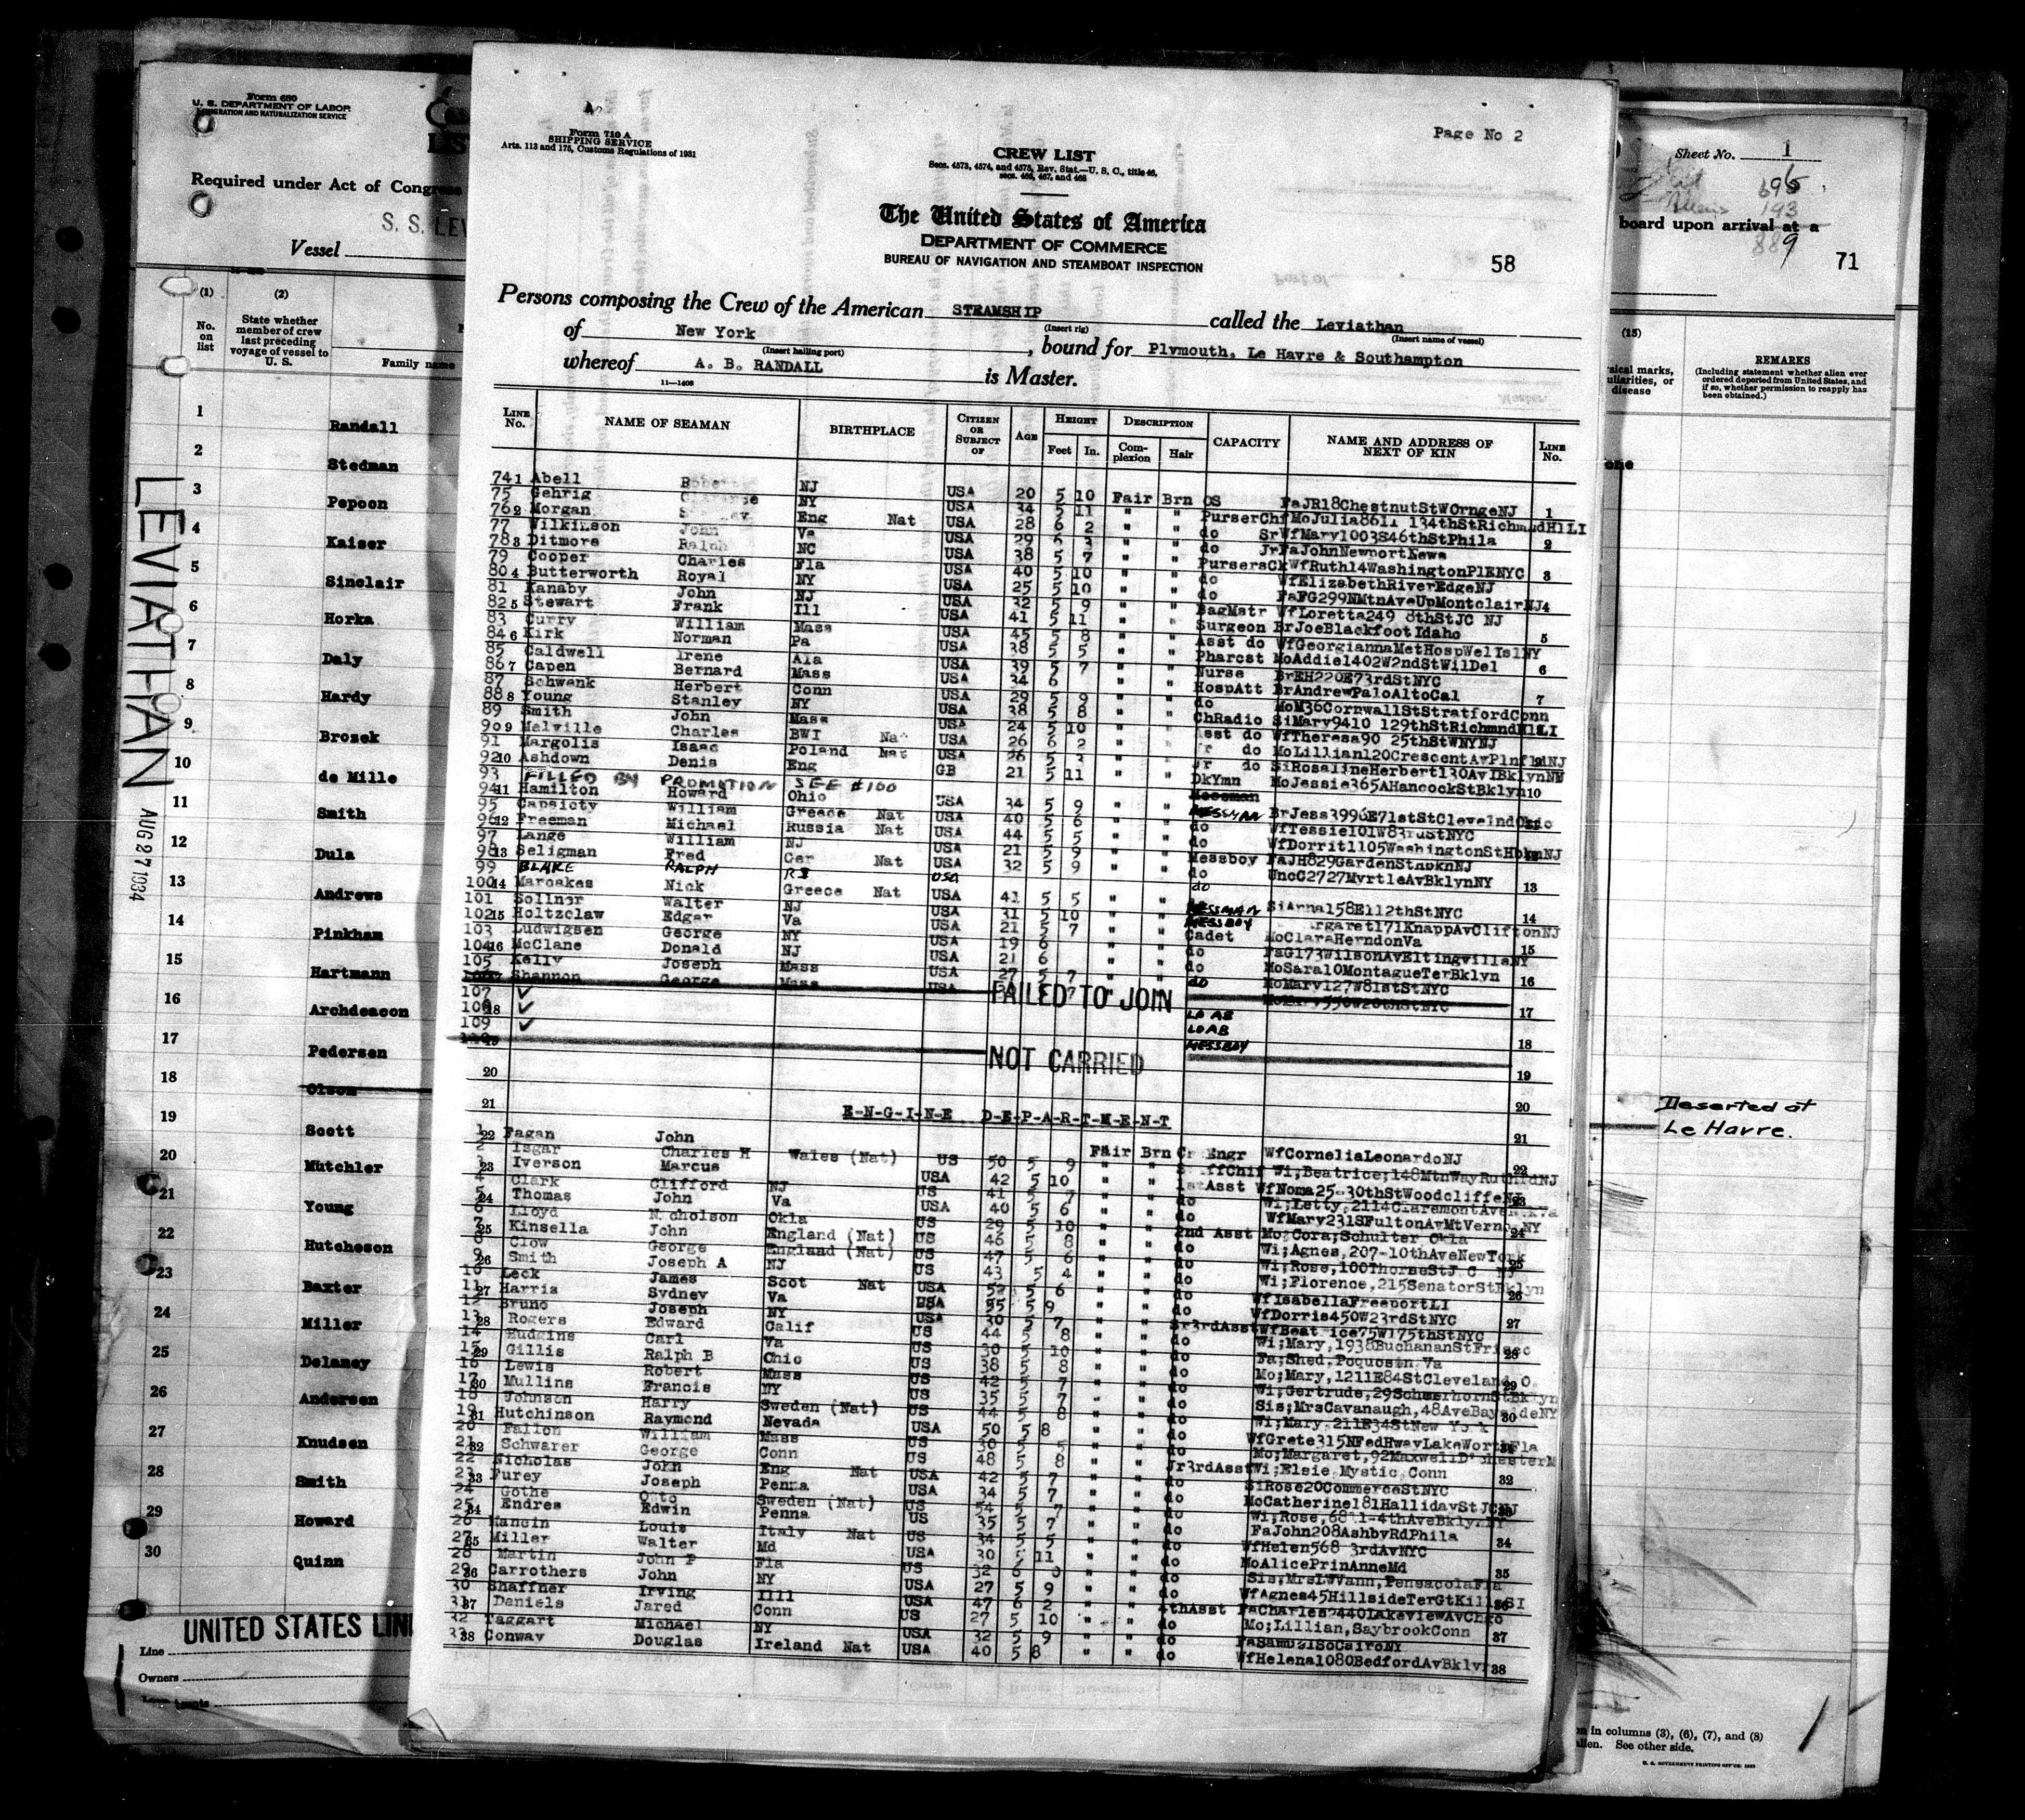 Form 680
U. S. DEPARTMENT OF LABOR
IMMIGRATION AND NATURALIZATION SERVICE
Required under Act of Congress
S. S. LEV
Vessel
(1)
(2)
No. on list
State whether member of crew last preceding voyage of vessel to U. S.
Family name
1 Randall
2 Stedman
3 Pepoon
4 Kaiser
5 Sinclair
6 Horka
7 Daly
8 Hardy
9 Brosek
10 de Mille
11 Smith
12 Dula
13 Andrews
14 Pinkham
15 Hartmann
16 Archdeacon
17 Pedersen
18 Olson
19 Scott
20 Mutchler
21 Young
22 Hutcheson
23 Baxter
24 Miller
25 Delaney
26 Andersen
27 Knudsen
28 Smith
29 Howard
30 Quinn
LEVIATHAN
AUG 27 1934
UNITED STATES LIN
Line
Owners
Form 710 A
SHIPPING SERVICE
Arts. 113 and 175, Customs Regulations of 1931
Page No 2
CREW LIST
Secs. 4573, 4574, and 4575, Rev. Stat.—U. S. C., title 46,
secs. 466, 467, and 468
The United States of America
DEPARTMENT OF COMMERCE
BUREAU OF NAVIGATION AND STEAMBOAT INSPECTION
58
Persons composing the Crew of the American STEAMSHIP called the Leviathan
(Insert rig) (Insert name of vessel)
of New York, bound for Plymouth, Le Havre & Southampton
(Insert hailing port)
whereof A. B. RANDALL is Master.
11—1408
LINE No. NAME OF SEAMAN BIRTHPLACE CITIZEN OR SUBJECT OF AGE HEIGHT Feet In. DESCRIPTION Complexion Hair CAPACITY NAME AND ADDRESS OF NEXT OF KIN LINE No.
74 1 Abell NJ USA 20 5 10 Fair Brn OS FaJR18ChestnutStWOrngeNJ 1
75 Gehrig NY USA 34 5 11 " " PurserChf MoJulia8611 134thStRichmndHlLI
76 2 Morgan Eng Nat USA 28 6 2 " " do Sr WfMary1003S46thStPhila 2
77 Wilkinson John Va USA 29 6 3 " " do Jr FaJohnNewportNews
78 3 Ditmore Ralph NC USA 38 5 7 " " PursersCk WfRuth14WashingtonPlENYC 3
79 Cooper Charles Fla USA 40 5 10 " " do WfElizabethRiverEdgeNJ
80 4 Butterworth Royal NY USA 25 5 10 " " do FaFG299NMtnAveUpMontclairNJ 4
81 Kanaby John NJ USA 32 5 9 " " BagMstr WfLoretta249 8thStJC NJ
82 5 Stewart Frank Ill USA 41 5 11 " " Surgeon BrJoeBlackfoot Idaho 5
83 Curry William Mass USA 45 5 8 " " Asst do WfGeorgiannaMetHospWelIslNY
84 6 Kirk Norman Pa USA 38 5 5 " " Pharcst MoAddie1402W2ndStWilDel 6
85 Caldwell Irene Ala USA 39 5 7 " " Nurse BrEH220E73rdStNYC
86 7 Capen Bernard Mass USA 34 6 " " HospAtt BrAndrewPaloAltoCal 7
87 Schwenk Herbert Conn USA 29 5 9 " " do MoM36CornwallStStratfordConn
88 8 Young Stanley NY USA 38 5 8 " " ChRadio SiMary9410 129thStRichmndHlLI
89 Smith John Mass USA 24 5 10 " " Asst do WfTheresa90 25thStWNYNJ
90 9 Melville Charles BWI Nat USA 26 6 2 " " Jr do MoLillian120CrescentAvPlnfldNJ
91 Margolis Isaac Poland Nat USA 26 5 3 " " Jr do SiRosalineHerbert130AvIBklynNY
92 10 Ashdown Denis Eng GB 21 5 11 " " DkYmn MoJessie365AHancockStBklyn 10
93 FILLED BY PROMOTION SEE #100
94 11 Hamilton Howard Ohio USA 34 5 9 " " MESSMAN BrJess3996E71stStClevelndOhio
95 Capsioty William Greece Nat USA 40 5 6 " " do WfTessie101W83rdStNYC
96 12 Freeman Michael Russia Nat USA 44 5 5 " " do WfDorrit1105WashingtonStHbknNJ
97 Lange William NJ USA 21 5 9 " " Messboy FaJH829GardenStHbknNJ
98 13 Seligman Fred Ger Nat USA 32 5 9 " " do UncC2727MyrtleAvBklynNY 13
99 BLAKE RALPH RI USA do
100 14 Maroakes Nick Greece Nat USA 41 5 5 " " MESSMAN SiAnna158E112thStNYC 14
101 Sollner Walter NJ USA 31 5 10 " " MESSBOY 171KnappAvCliftonNJ
102 15 Holtzclaw Edgar Va USA 21 5 7 " " Cadet MoClaraHerndonVa 15
103 Ludwigsen George NY USA 19 6 " " do FaG173WilsonAvEltingvilleNY
104 16 McClane Donald NJ USA 21 6 " " do MoSara10MontagueTerBklyn 16
105 Kelly Joseph Mass USA 27 5 7 " " do MoMary127W81stStNYC
Shannon George Mass USA FAILED TO JOIN 17
107 ✓ LO AB
108 18 ✓ LOAB 18
109 ✓ MESSBOY
NOT CARRIED 19
20
20
21 E-N-G-I-N-E D-E-P-A-R-T-M-E-N-T
21
1 22 Fagan John Wales (Nat) US 50 5 9 Fair Brn Engr WfCorneliaLeonardoNJ 22
2 Isgar Charles H USA 42 5 10 " " Wi;Beatrice;148MtnWayRuthfdNJ
3 23 Iverson Marcus NJ US 41 5 7 " " 1stAsst WfNoma25-30thStWoodcliffeNJ 23
4 Clark Clifford Va USA 40 5 6 " " do Wi;Letty,2114ClaremontAve
5 24 Thomas John Okla US 29 5 10 " " do WfMary231SFultonAvMtVernon NY 24
6 Lloyd Nicholson England (Nat) US 46 5 8 " " 2nd Asst Mo;Cora;Schulter Okla
7 25 Kinsella John England (Nat) US 47 5 6 " " do Wi;Agnes,207-10thAveNewYork 25
8 Clow George NJ US 43 5 4 " " do Wi;Rose,100ThorneStJ C NJ
9 26 Smith Joseph A Scot Nat USA 52 5 6 " " do Wi;Florence,215SenatorStBklyn 26
10 Leck James Va USA 55 5 9 " " do WfIsabellaFreeportLI
11 27 Harris Sydney NY USA 30 5 7 " " do WfDorris450W23rdStNYC 27
12 Bruno Joseph Calif US 44 5 8 " " Sr3rdAsst WfBeatrice75W175thStNYC
13 28 Rogers Edward Va US 30 5 10 " " do Wi;Mary,1938BuchananStFrisco 28
14 Hudgins Carl Ohio US 38 5 8 " " do Fa;Shed,Poquosen Va
15 29 Gillis Ralph B Mass US 42 5 7 " " do Mo;Mary,1211E84StCleveland O. 29
16 Lewis Robert NY US 35 5 7 " " do Wi;Gertrude,29SchmerhornStBklyn
17 30 Mullins Francis Sweden (Nat) US 44 5 8 " " do Sis;MrsCavanaugh,48AveBaysideNY 30
18 Johnson Harry Nevada USA 50 5 8 " " do Wi;Mary,211E34StNew York
19 31 Hutchinson Raymond Mass US 30 5 5 " " do WfGrete315NFedHwayLakeWorthFla
20 Fallon William Conn US 48 5 8 " " do Mo;Margaret,92Maxwell
21 32 Schwarer George Eng Nat USA 42 5 7 " " Jr3rdAsst Wi;Elsie,Mystic,Conn 32
22 Nicholas John Penna USA 34 5 7 " " do SiRose20CommerceStNYC
23 33 Furey Joseph Sweden (Nat) US 54 5 7 " " do MoCatherine181HallidayStJCNJ 33
24 Gothe Otto Penna US 35 5 7 " " do Wi;Rose,6811-4thAveBklyn NY
25 34 Endres Edwin Italy Nat US 34 5 5 " " do FaJohn208AshbyRdPhila 34
26 Mancin Louis Md USA 30 5 11 " " do WfHelen568 3rdAvNYC
27 35 Miller Walter Fla US 32 6 0 " " do MoAlicePrinAnneMd 35
28 Martin John P NY USA 27 5 9 " " do Sis;MrsLWVann,PensacolaFla
29 36 Carrothers John Illl USA 47 6 2 " " do WfAgnes45HillsideTerGtKillsSI 36
30 Shaffner Irving Conn US 27 5 10 " " 4thAsst FaCharles2440LakeviewAvChgo
31 37 Daniels Jared NY USA 32 5 9 " " do Mo;Lillian,SaybrookConn 37
32 Taggart Michael Ireland Nat USA 40 5 8 " " do FaSamD21SoCairoNY
33 38 Conway Douglas do WfHelena1080BedfordAvBklyn 38
Sheet No. 1
695
193
889
board upon arrival at a
71
(15)
sical marks,
uliarities, or
disease
REMARKS
(Including statement whether alien ever ordered deported from United States, and if so, whether permission to reapply has been obtained.)
one
Deserted at
Le Havre.
in columns (3), (6), (7), and (8)
alien. See other side.
U. S. GOVERNMENT PRINTING OFFICE: 1933